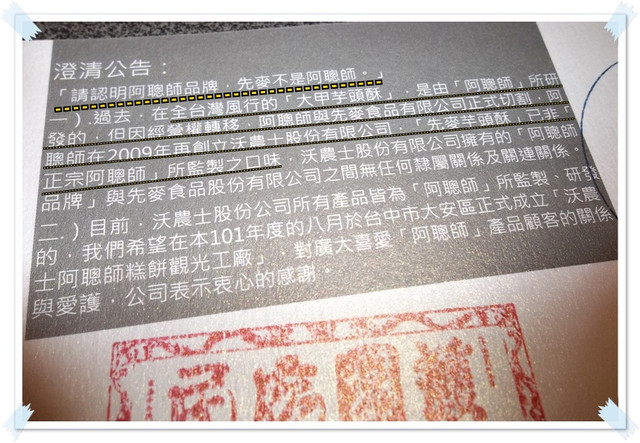 澄清公告：
「請認明阿聰師品牌，先麥不是阿聰師。」
一）.過去，在全台灣風行的「大甲芋頭酥」，是由「阿聰師」所研
發的，但因經營權轉移，阿聰師與先麥食品有限公司正式切割，阿
聰師在2009年再創立沃農士股份有限公司，「先麥芋頭酥」已非
正宗阿聰師」所監製之口味，沃農士股份有限公司擁有的「阿聰師
品牌」與先麥食品股份有限公司之間無任何隸屬關係及關連關係。
二.）目前，沃農士股份公司所有產品皆為「阿聰師」所監製、研發
的，我們希望在本101年度的八月於台中市大安區正式成立「沃農
士阿聰師糕餅觀光工廠」、對廣大喜愛「阿聰師」產品顧客的關係
與愛護，公司表示衷心的感謝。